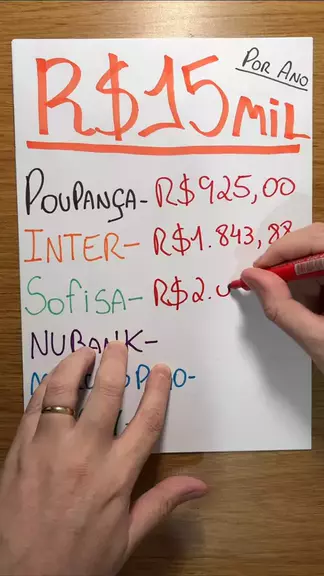 POR ANO
R$15 MIL
POUPANÇA- R$925,00
INTER- R$1.843,88
SOFISA- R$2.
NUBANK-